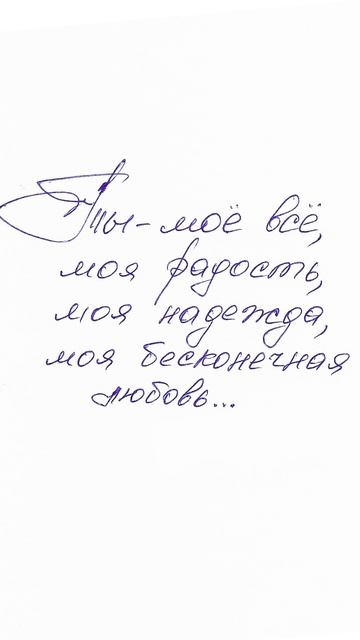 Ты - моё всё,
моя радость,
моя надежда,
моя бесконечная
любовь...